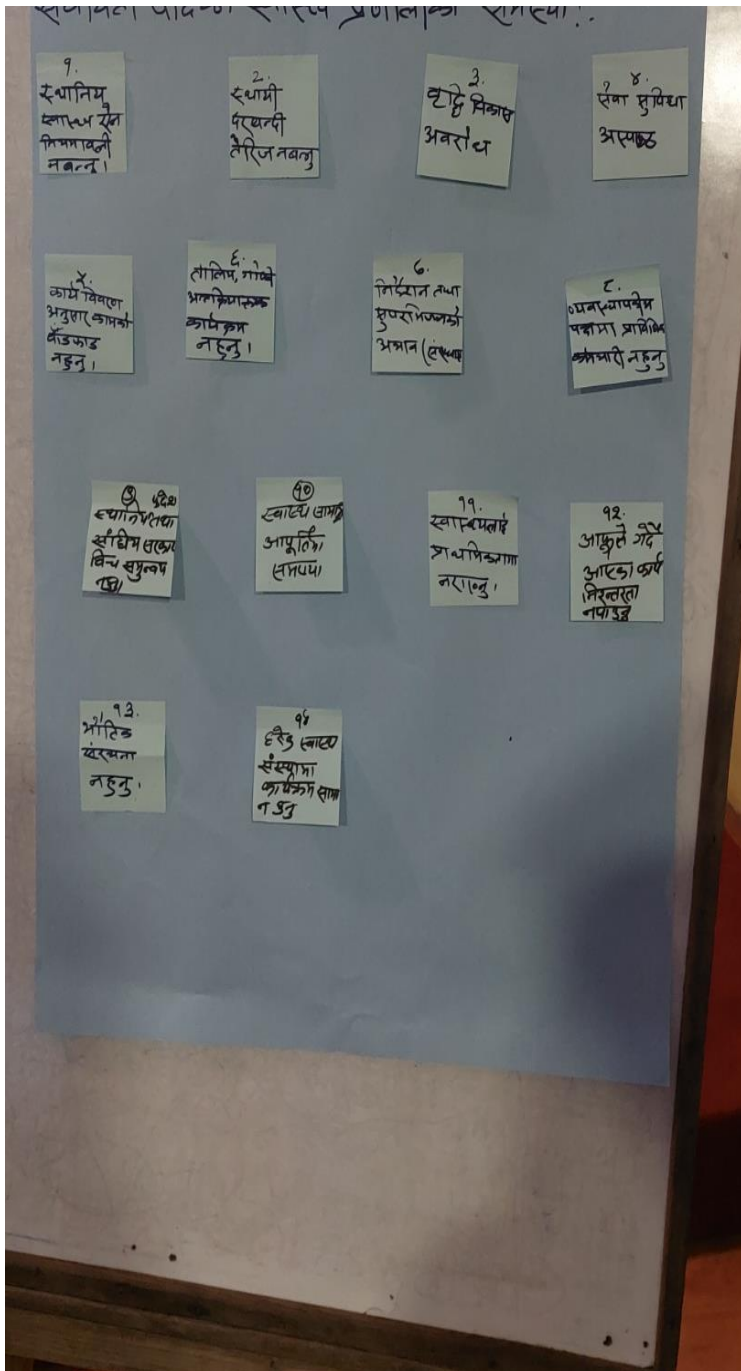 स्वास्थ्य प्रणालीका समस्या..
१.
स्थानिय
स्वास्थ्य ऐन
नियमावली
नबन्नु।
२.
स्थायी
दरबन्दी
तेरिज नबन्नु
३.
वृद्धि विकास
अवरोध
४.
सेवा सुविधा
अस्पष्ट
५.
कार्य विवरण
अनुसार कामको
बाँडफाड
नहुनु।
६.
तालिम, गोष्ठी
अन्तरक्रियात्मक
कार्यक्रम
नहुनु।
७.
निर्देशन तथा
सुपरभिजनको
अभाव
८.
व्यवस्थापकीय
पक्षमा प्राविधिक
कर्मचारी नहुनु
९ प्रदेश
स्थानिय तथा
संघिय सरकार
विच समुन्वय
१०
स्वास्थ्य सामाग्री
आपूर्तिमा
समस्या
११.
स्वास्थ्यलाई
प्राथमिकतामा
नराख्नु।
१२.
आफूले गर्दै
आएका कार्य
निरन्तरता
नपाउनु
१३.
भौतिक
संरचना
नहुनु।
१४
हरेक स्वास्थ्य
संस्थामा
कार्यक्रम
न हुनु